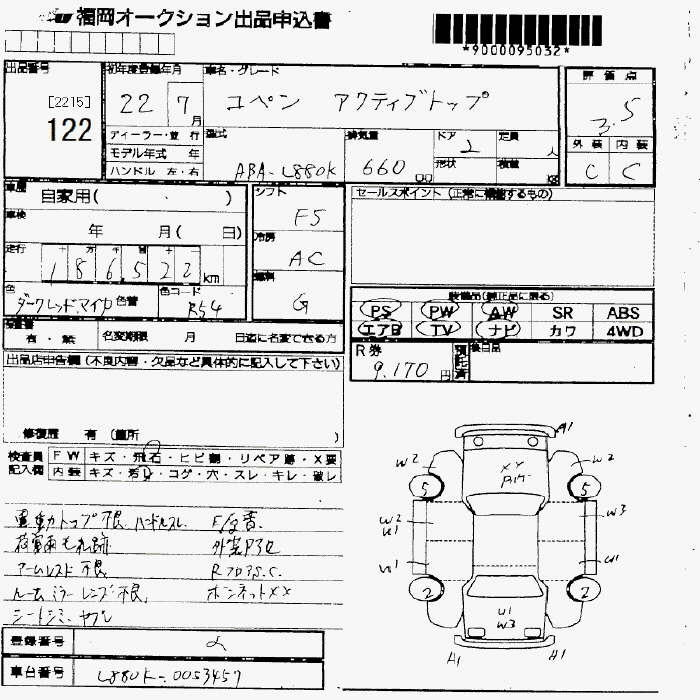 福岡オークション出品申込書
*9000095032*
出品番号
[2215]
122
初年度登録年月
22 7月
車名・グレード
コペン アクティブトップ
評価点
3.5
ディーラー・並行
モデル年式 年
ハンドル 左・右
型式
ABA-L880K
排気量
660 cc
ドア 2
形状
定員 人
積載 kg
外装 内装
C C
車歴
自家用( )
シフト
F5
セールスポイント(正常に機能するもの)
車検
年 月( 日)
冷房
AC
走行
十 万 千 百 十 一
186,522 km
燃料
G
色
ダークレッドマイカ 色替
色コード
R54
装備品(純正品に限る)
PS PW AW SR ABS
エアB TV ナビ カワ 4WD
有・無 名変期限 月 日迄に名変できる方
R券
9,170円
預託済
後日品
出品店申告欄(不良内容・欠品など具体的に記入して下さい)
修復歴 有 (箇所 )
検査員記入欄
FW キズ・飛石・ヒビ割・リペア跡・X要
内装 キズ・汚れ・コゲ・穴・スレ・キレ・破レ
電動トップ不良 ハンドルスレ
アームレスト不良
ルームミラーレンズ不良
ボンネットXX
シートシミ、ヤブレ
登録番号
車台番号 L880K-0053457
A1
W2 W2
XY
5 5
W2 W3
U1
U1 U1
2 2
U1
W3
A1 A1